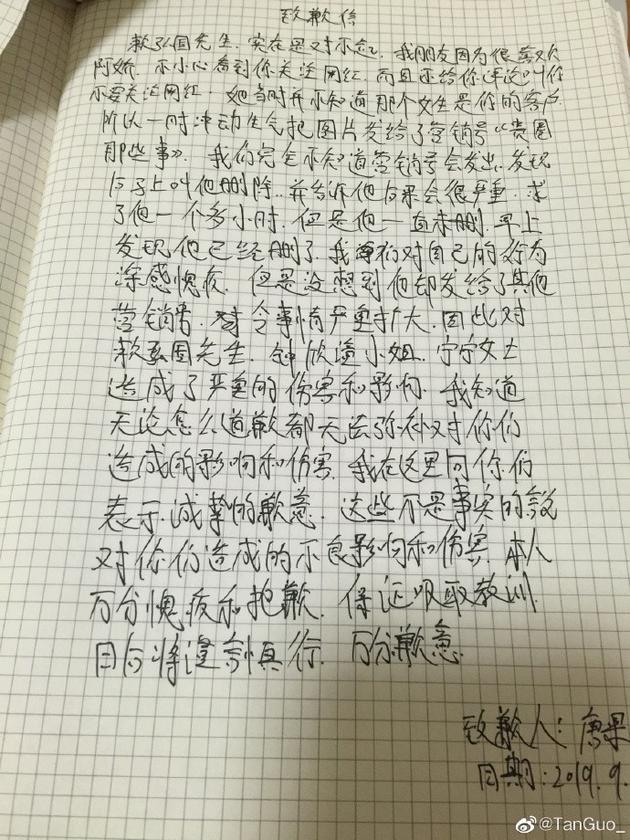 致歉信
赖弘国先生. 实在是对不起. 我朋友因为很喜欢
阿娇. 不小心看到你关注网红. 而且还给你评论叫你
不要关注网红. 她当时并不知道那个女生是你的客户.
所以一时冲动生气把图片发给了营销号《贵圈
那些事》. 我们完全不知道营销号会发出. 发现
后马上叫他删除. 并告诉他后果会很严重. 求
了他一个多小时. 但是他一直未删. 早上
发现他已经删了. 我们对自己的行为
深感愧疚. 但是没想到他却发给了其他
营销号. 令事情严重扩大. 因此对
赖弘国先生. 钟欣潼小姐. 宁宁女士
造成了严重的伤害和影响. 我知道
无论怎么道歉都无法弥补对你们
造成的影响和伤害. 我在这里向你们
表示诚挚的歉意. 这些不是事实的言论
对你们造成的不良影响和伤害. 本人
万分愧疚和抱歉. 保证吸取教训.
日后将谨言慎行. 万分歉意.
致歉人: 唐果
日期: 2019.9.
@TanGuo_